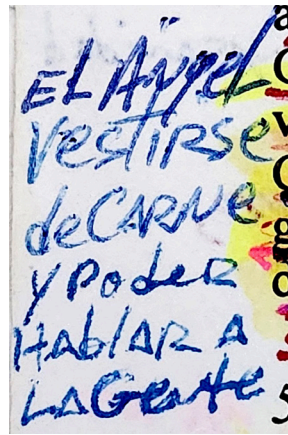 EL Ángel
vestirse
de CARNE
y PodeR
HAblAR A
LA Gente